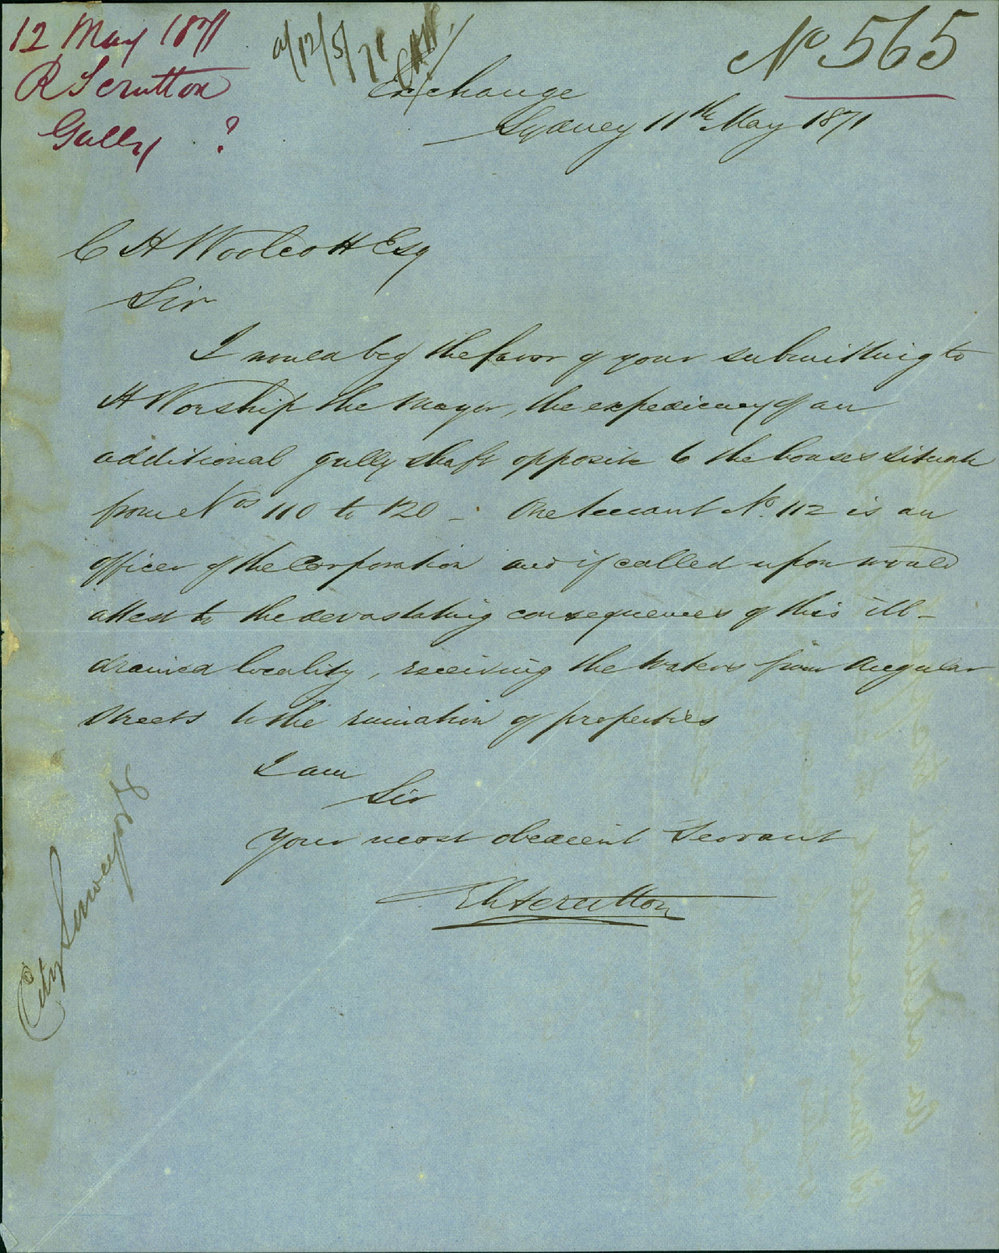 12 May 1871
R Scrutton
Gully ?
12/5/71 CHW.
No 565
Exchange
Sydney 11th May 1871
C H Woolcott Esq
Sir
I would beg the favor of your submitting to
H Worship the Mayor, the expediency of an
additional gully shaft opposite to the houses situate
from Nos 110 to 120 - The tenant No. 112 is an
officer of the Corporation and if called upon would
attest to the devastating consequences of this ill-
drained locality, receiving the waters from angular
streets to the ruination of properties
I am
Sir
Your most obedient Servant
Scrutton
City Surveyor